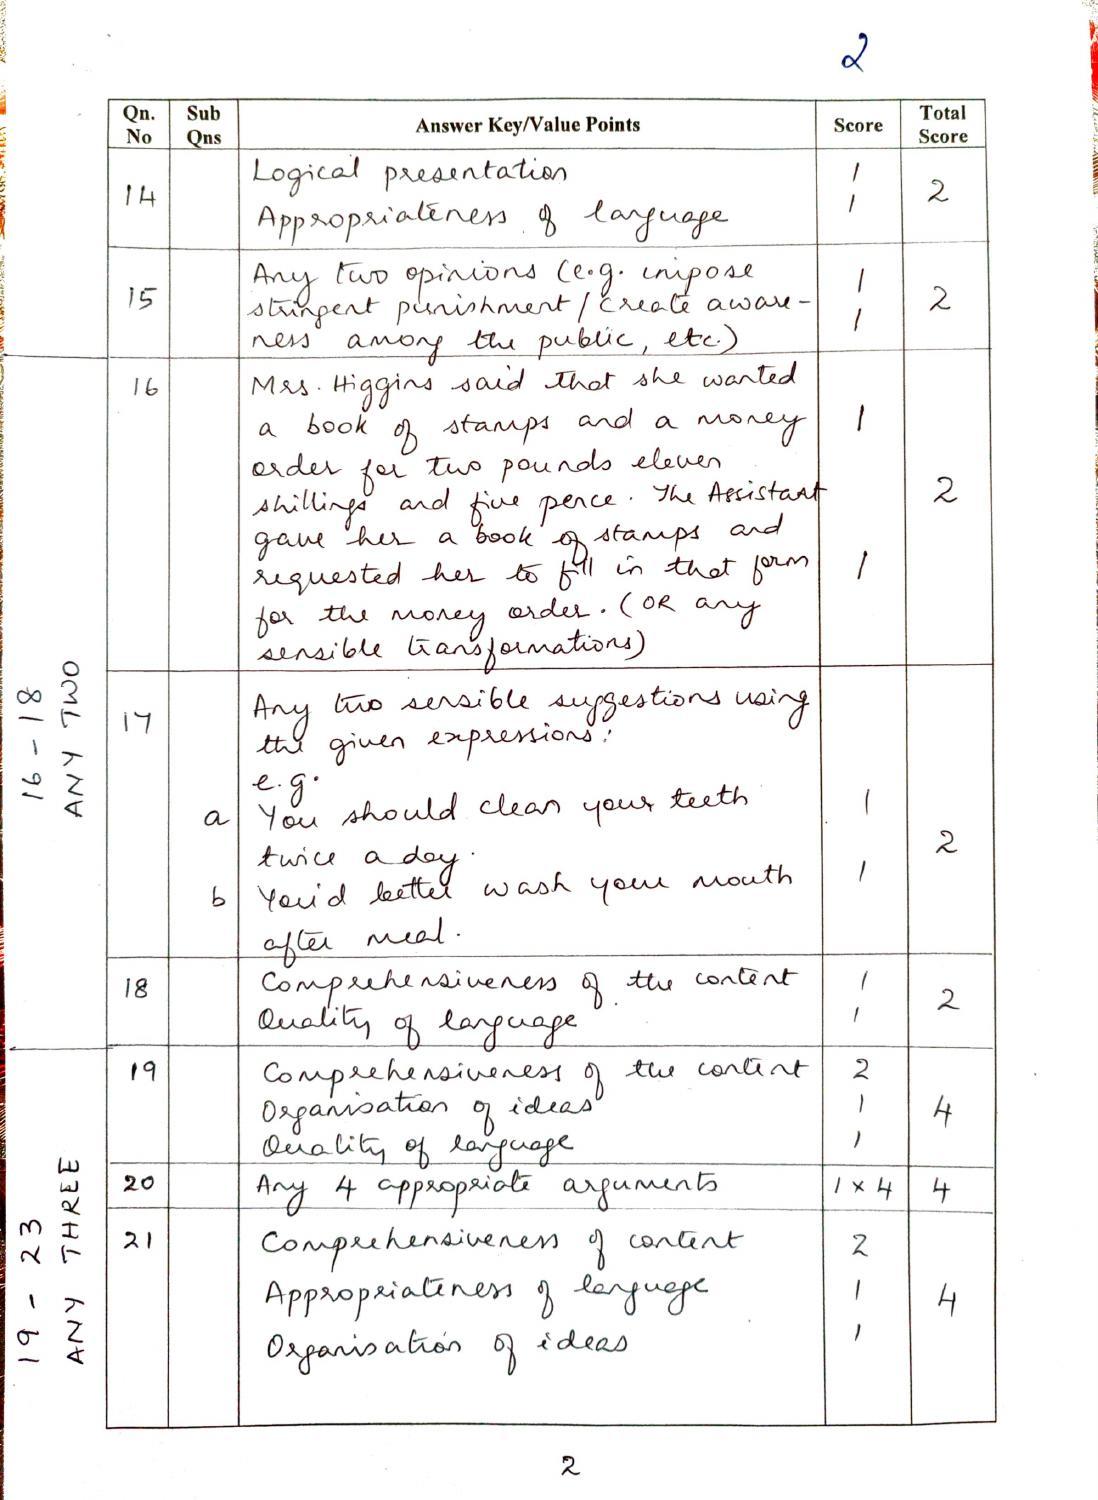 2
Qn. No Sub Qns Answer Key/Value Points Score Total Score
14 Logical presentation 1 2
Appropriateness of language 1
15 Any two opinions (e.g. impose 1 2
stringent punishment / create aware-
ness among the public, etc.) 1
16 - 18
ANY TWO
16 Mrs. Higgins said that she wanted
a book of stamps and a money 1
order for two pounds eleven
shillings and five pence. The Assistant 2
gave her a book of stamps and
requested her to fill in that form 1
for the money order. (OR any
sensible transformations)
17 Any two sensible suggestions using
the given expressions:
e.g.
a You should clean your teeth 1
twice a day. 2
b You'd better wash your mouth 1
after meal.
18 Comprehensiveness of the content 1 2
Quality of language 1
19 - 23
ANY THREE
19 Comprehensiveness of the content 2
Organisation of ideas 1 4
Quality of language 1
20 Any 4 appropriate arguments 1 x 4 4
21 Comprehensiveness of content 2
Appropriateness of language 1 4
Organisation of ideas 1
2